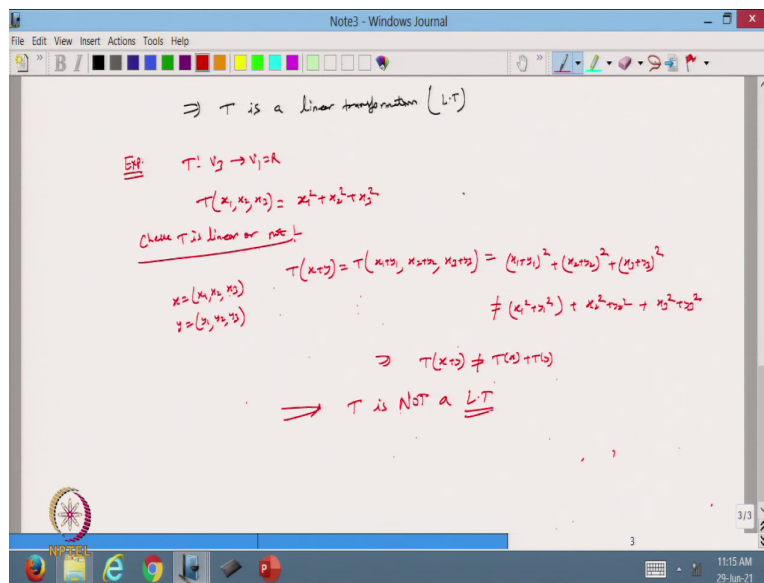 Note3 - Windows Journal
File Edit View Insert Actions Tools Help
B I
⇒ T is a linear transformation (L.T)
Exp: T: V3 → V1=R
T(x1, x2, x3) = x1² + x2² + x3²
Check T is linear or not!
T(x+y) = T(x1+y1, x2+y2, x3+y3) = (x1+y1)² + (x2+y2)² + (x3+y3)²
x = (x1, x2, x3)
y = (y1, y2, y3)
≠ (x1²+y1²) + x2²+y2² + x3²+y3²
⇒ T(x+y) ≠ T(x)+T(y)
⟹ T is NOT a L.T
3/3
3
NPTEL
11:15 AM
29-Jun-21